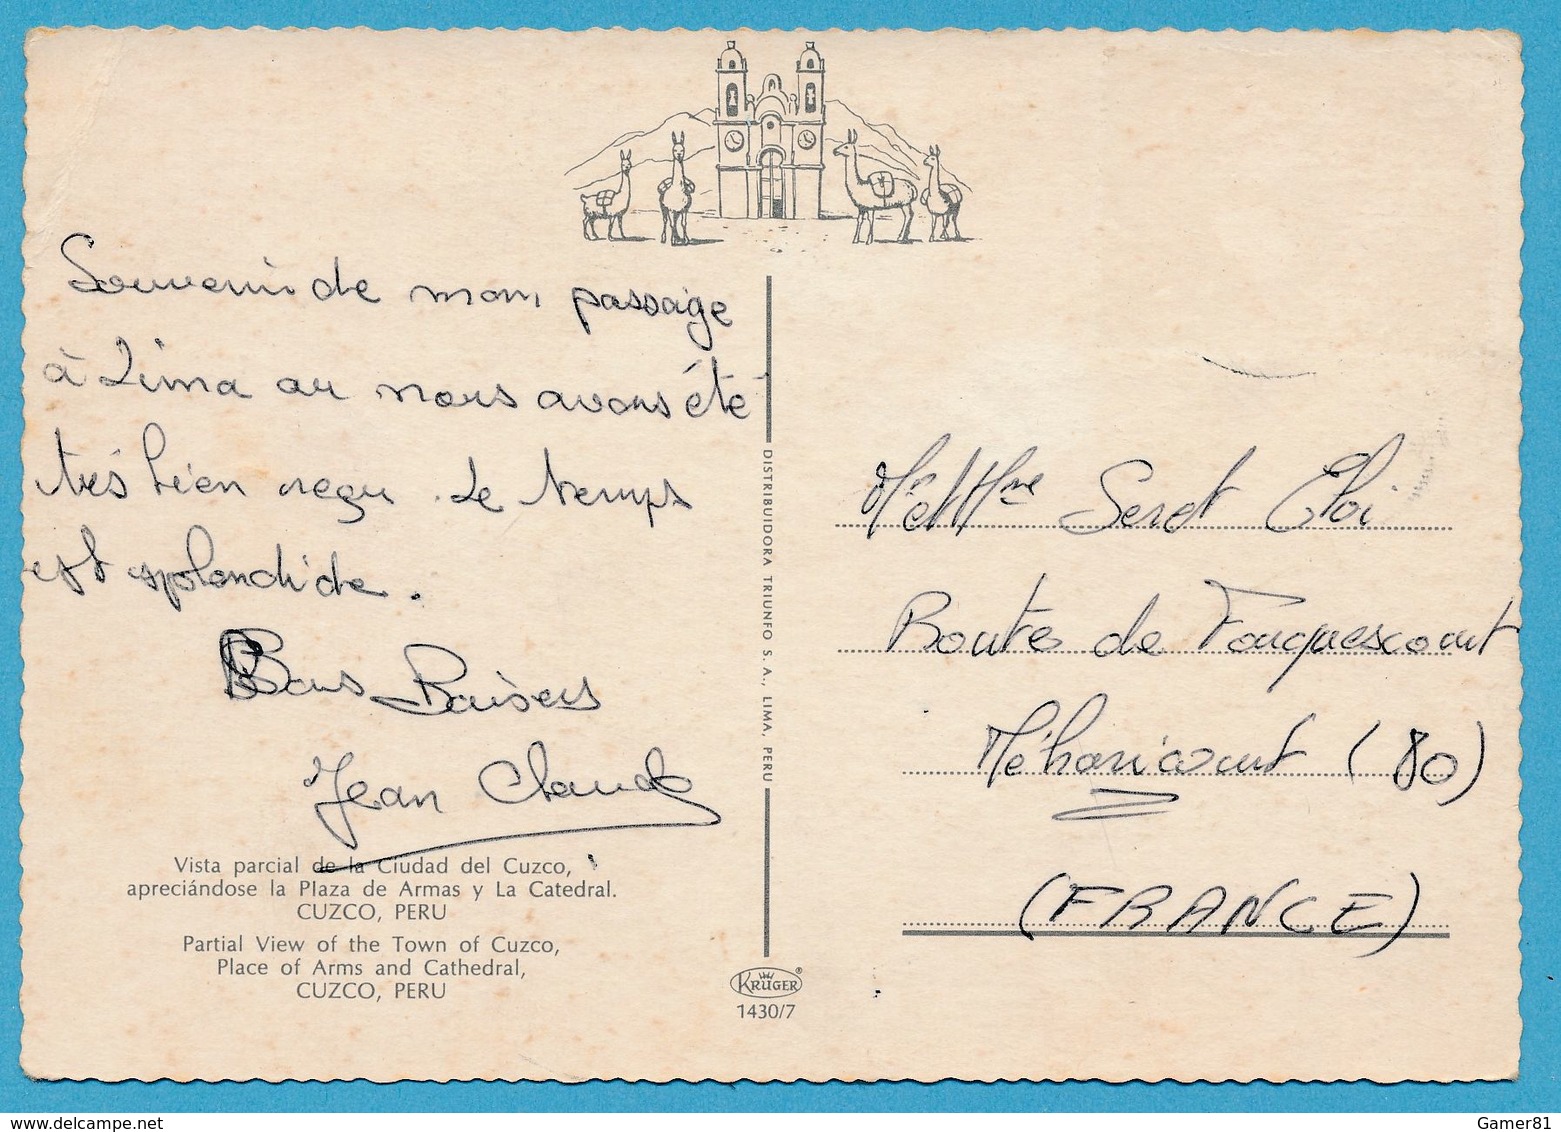 Souvenir de mon passage
à Lima ou nous avons été
très bien reçu. Le temps
est splendide.
Bons Baisers
Jean Claude
Vista parcial de la Ciudad del Cuzco,
apreciándose la Plaza de Armas y La Catedral.
CUZCO, PERU
Partial View of the Town of Cuzco,
Place of Arms and Cathedral,
CUZCO, PERU
DISTRIBUIDORA TRIUNFO S. A., LIMA, PERU
KRÜGER®
1430/7
Mr et Mme Seret Eloi
Route de Fouquescourt
Méharicourt (80)
(FRANCE)
Gamer81